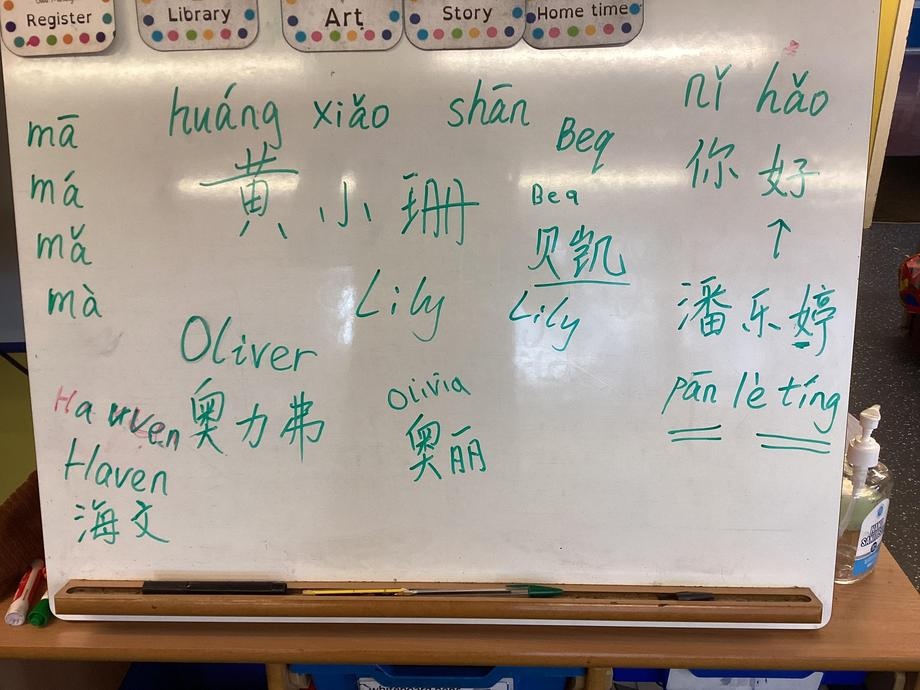 Register
Library
Art
Story
Home time
mā
má
mǎ
mà
huáng xiǎo shān
黄 小 珊
Lily
Beq
Bea
贝凯
Lily
nǐ hǎo
你 好
↑
潘 乐 婷
pān lè tíng
Oliver
奥 力 弗
Olivia
奥丽
Hauven
Haven
海文